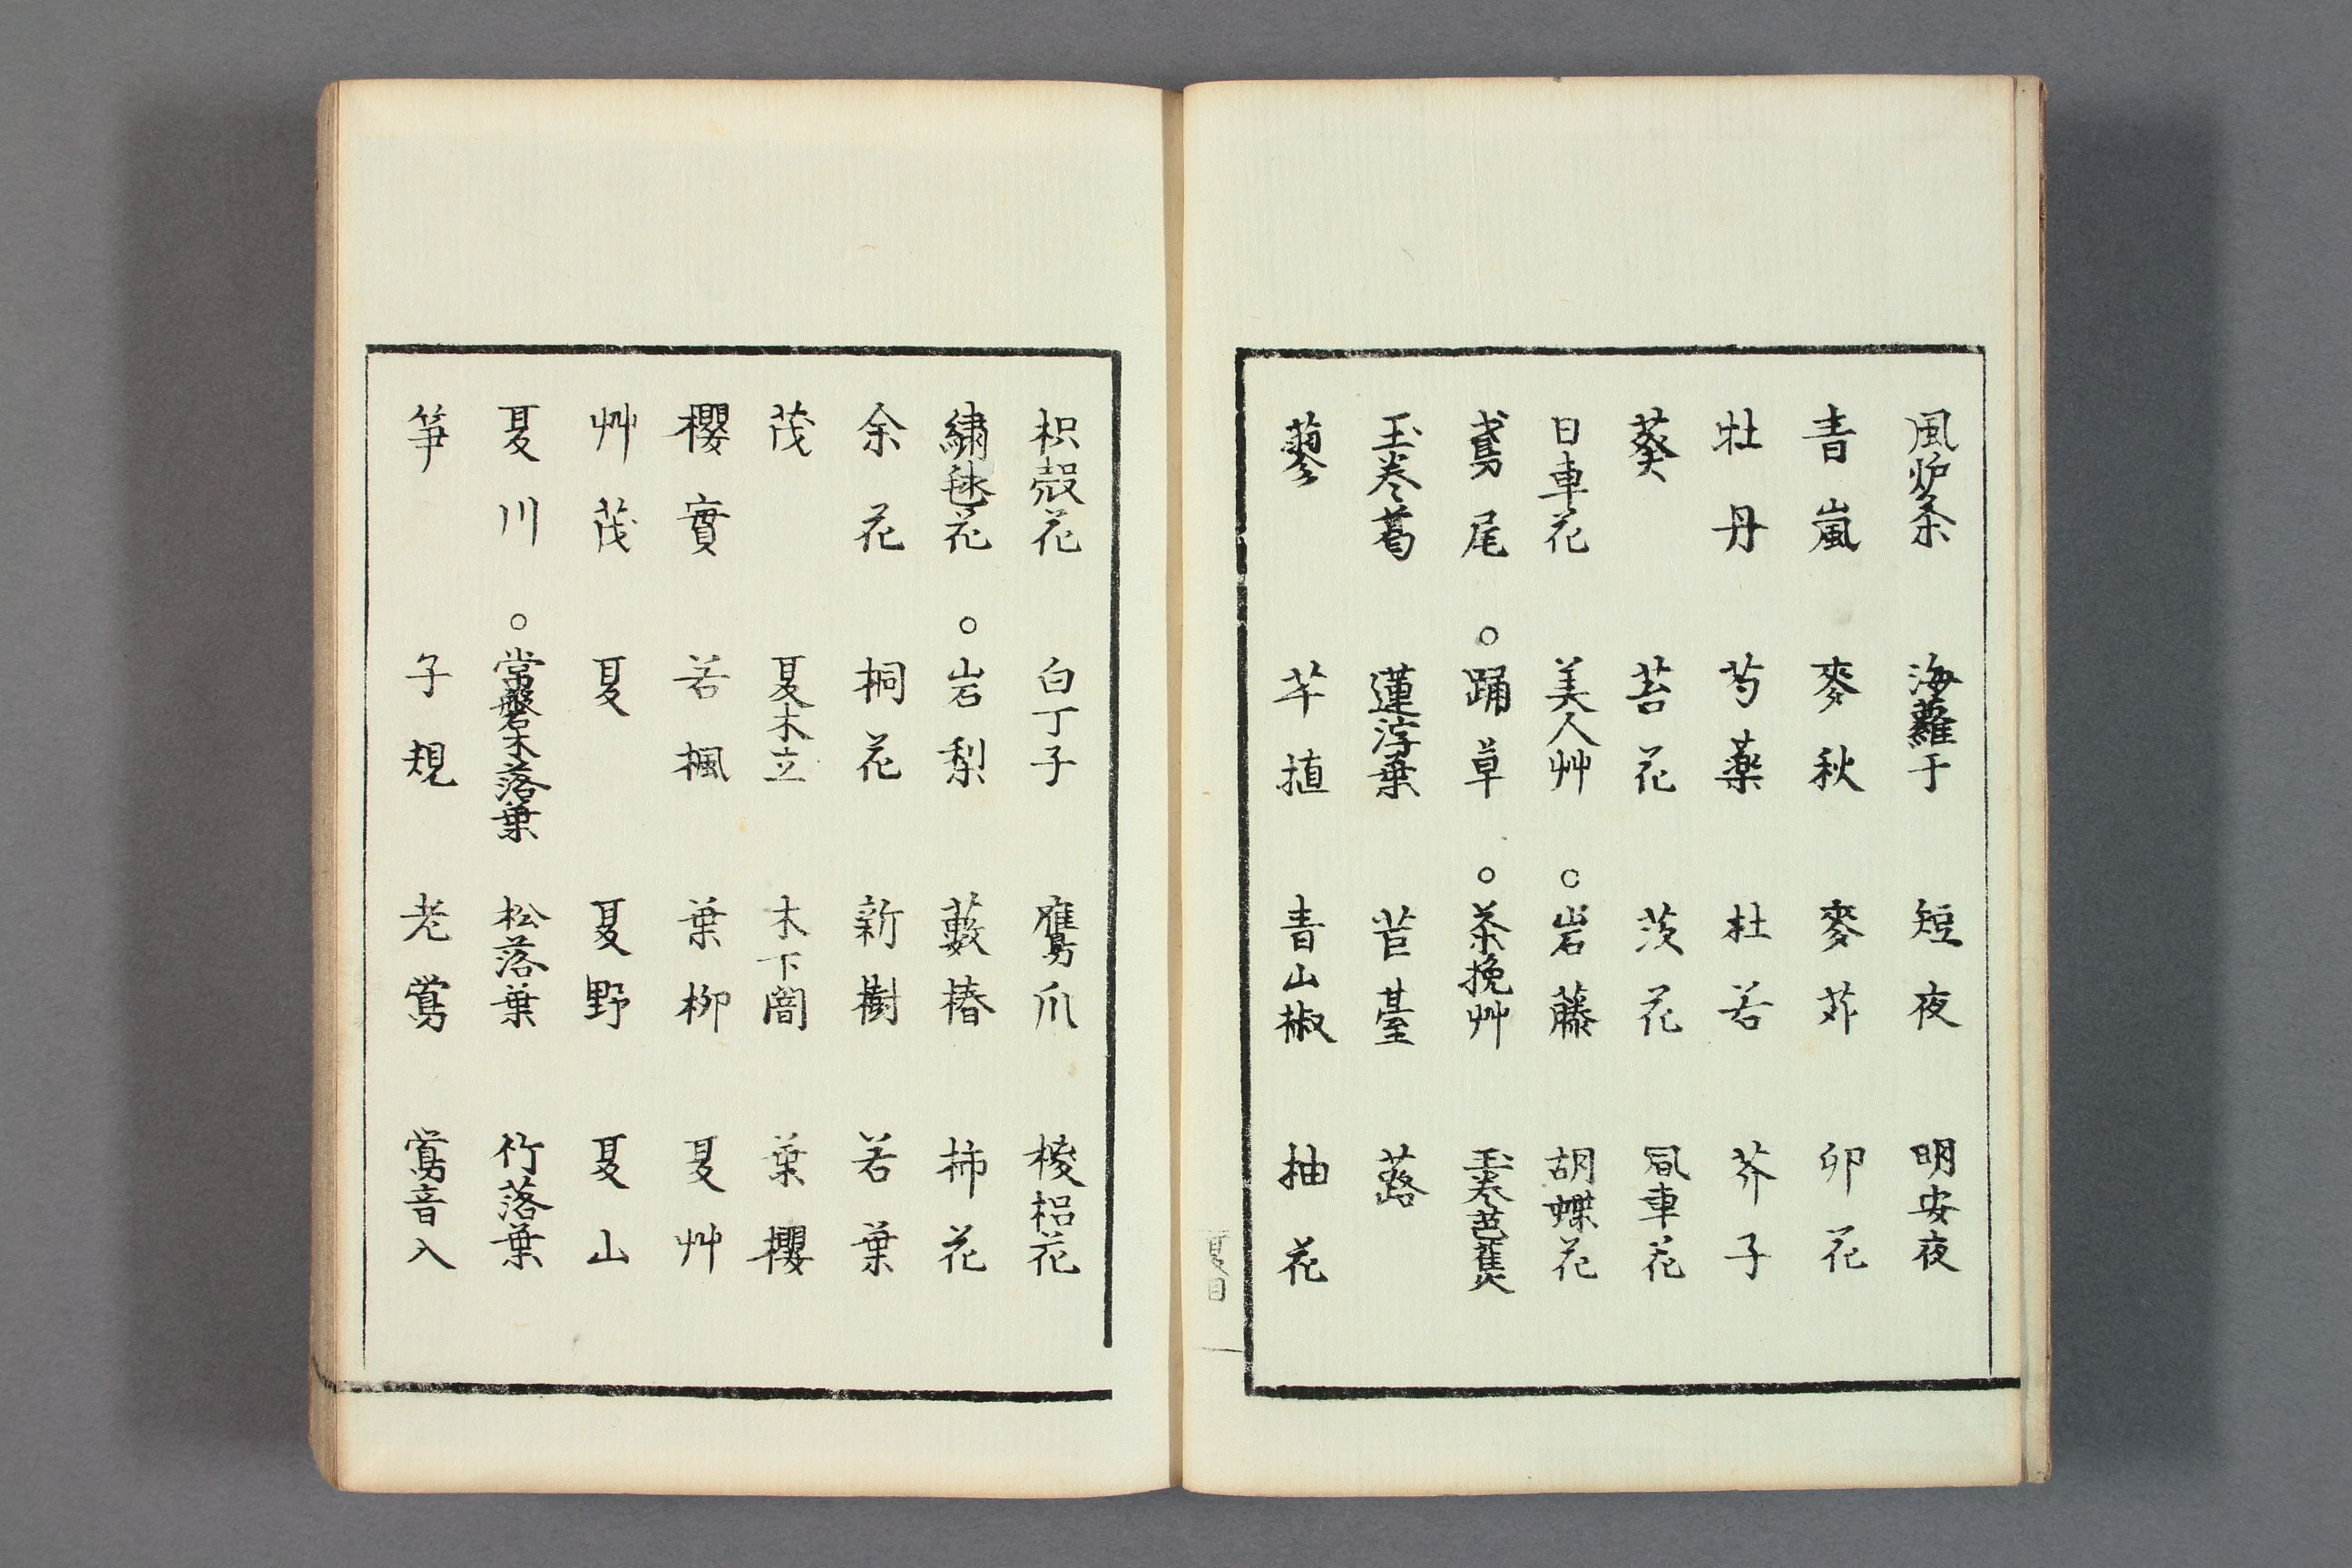 風炉茶 海蘿干 短夜 明安夜
青嵐 麥秋 麥 卯花
牡丹 芍薬 杜若 芥子
葵 苔花 茨花 風車花
日車花 美人艸 ○岩藤 胡蝶花
鳶尾 ○踊草 ○茶挽艸 玉巻芭蕉
玉巻葛 蓮浮葉 苣薹 蕗
蓼 芋植 青山椒 柚花
夏目 一
枳殻花 白丁子 鷹爪 椶梠花
繍毬花 ○岩梨 藪椿 柿花
余花 桐花 新樹 若葉
茂 夏木立 木下闇 葉櫻
櫻實 若楓 葉柳 夏艸
艸茂 夏 夏野 夏山
夏川 ○常磐木落葉 松落葉 竹落葉
笋 子規 老鶯 鶯音入